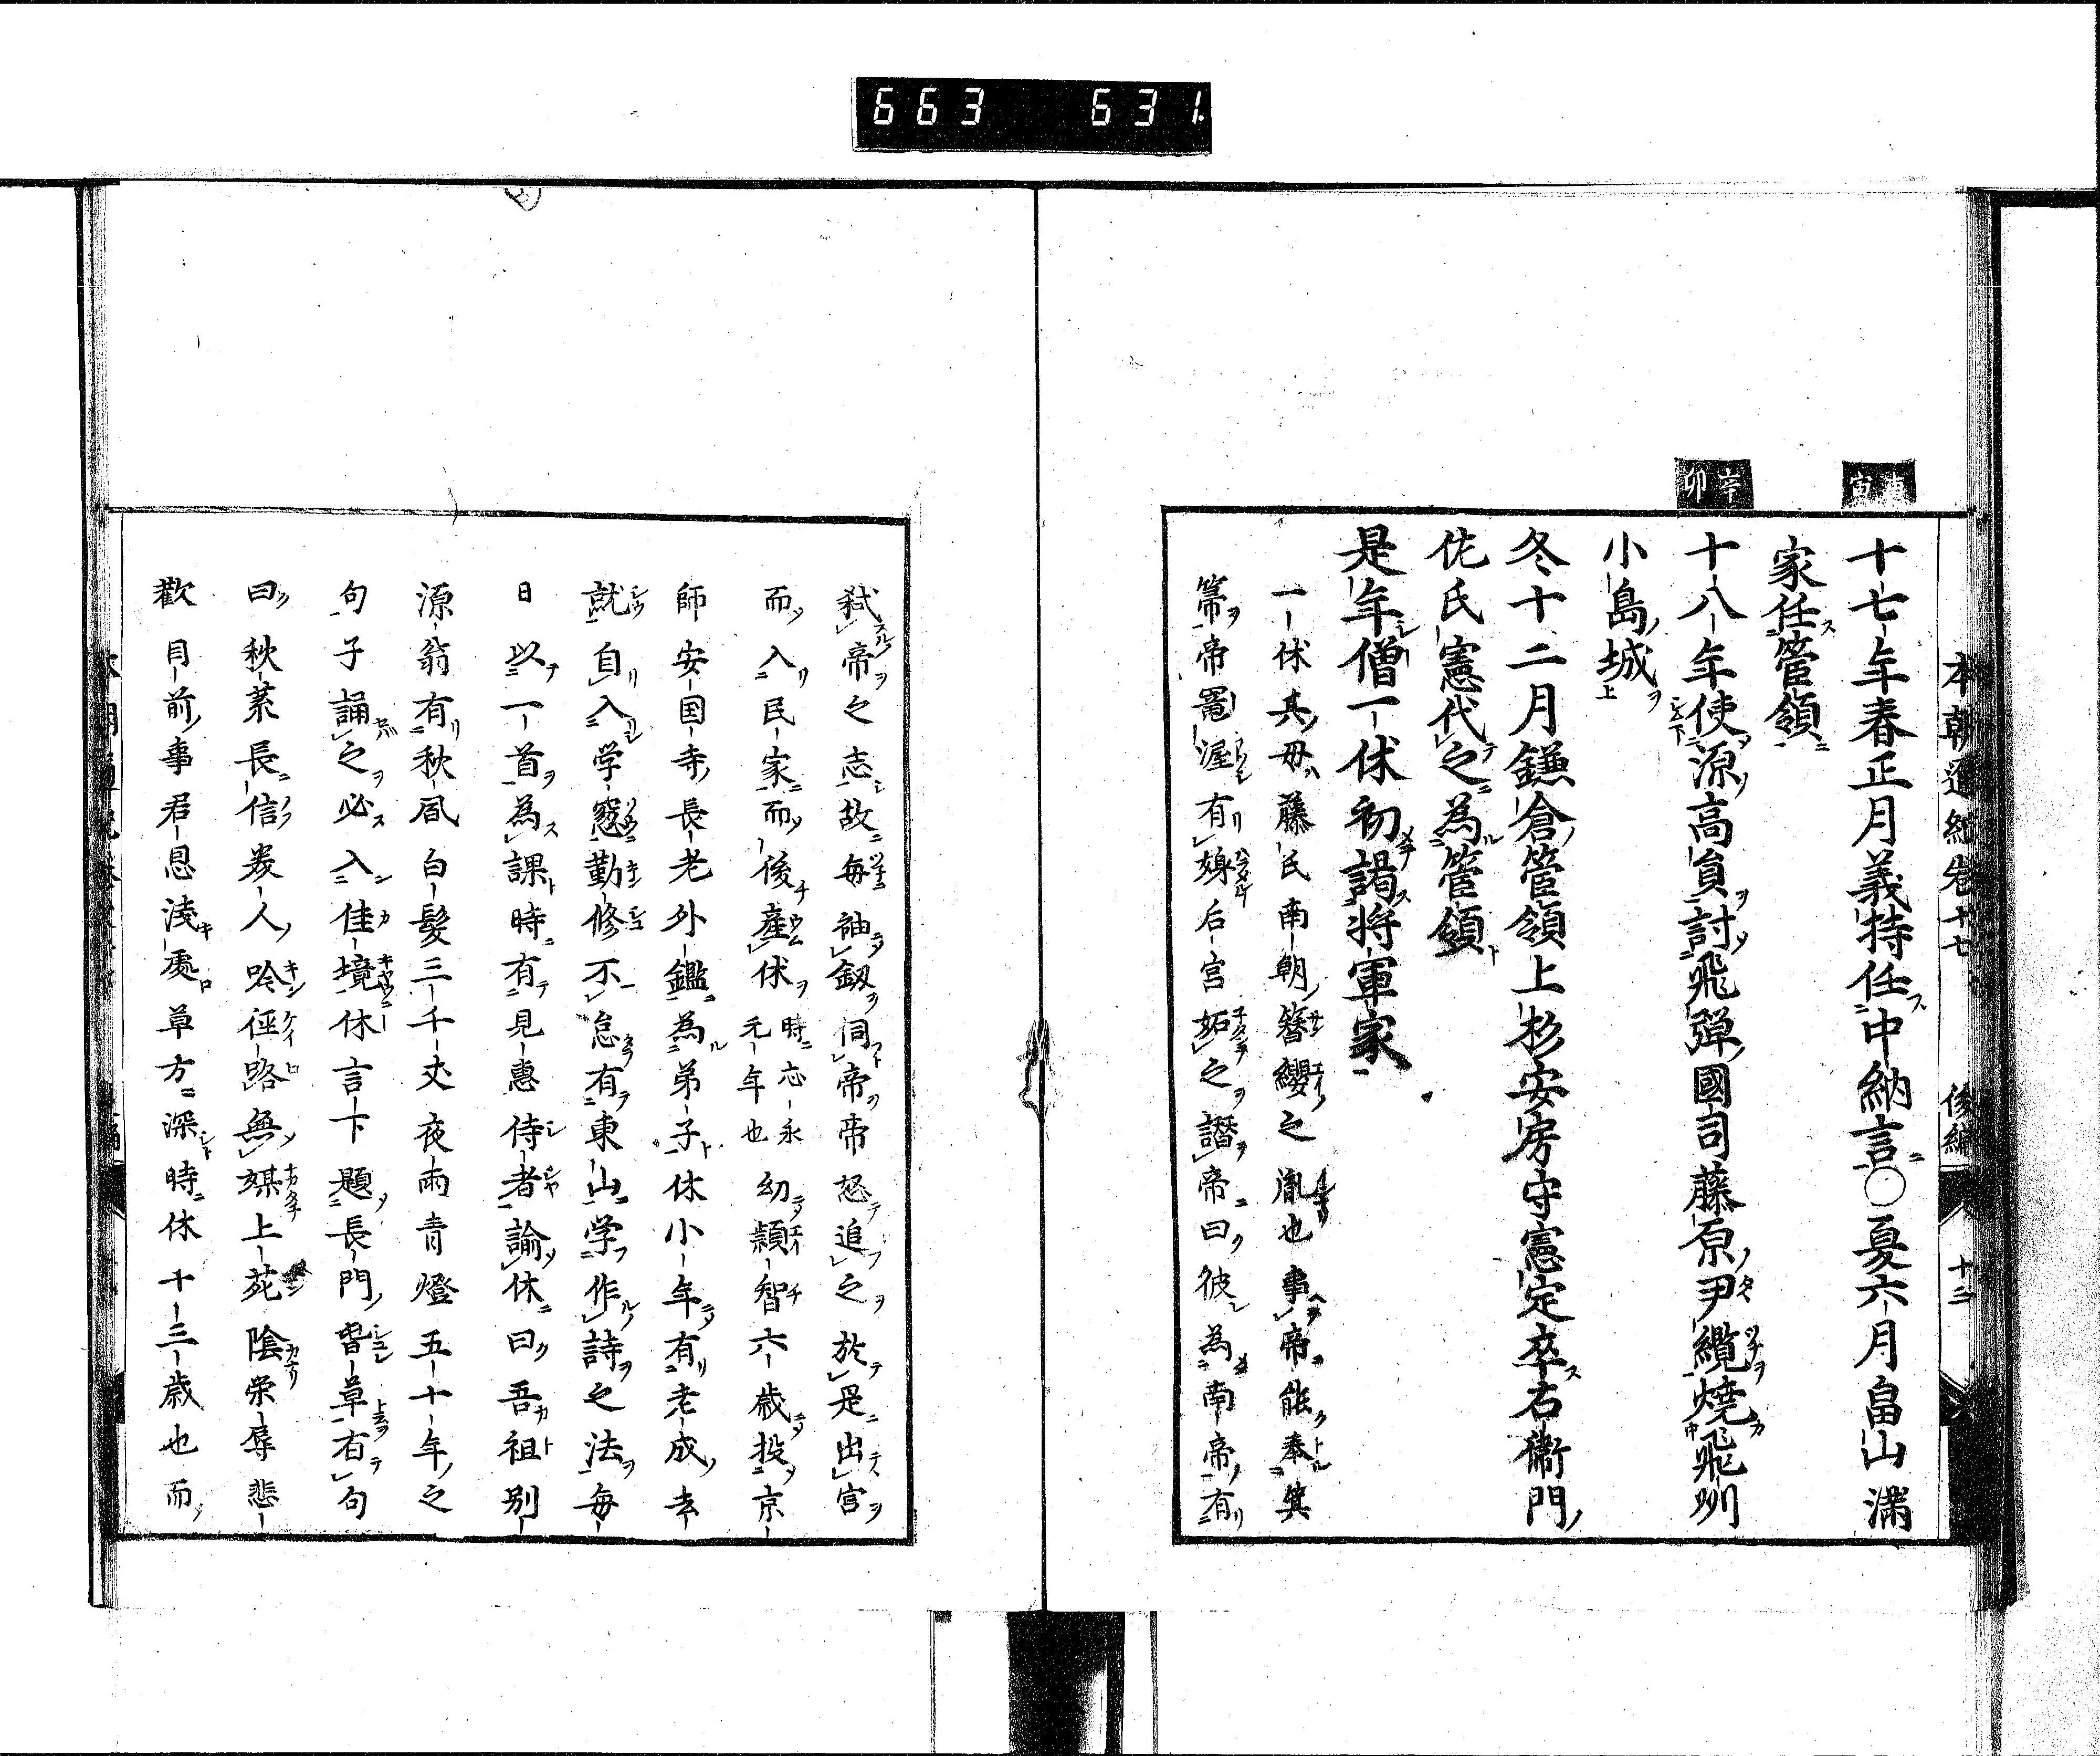 663 631
本朝通紀卷十七 後編 十二
庚寅
十七年春正月義持任中納言○夏六月畠山滿
家任管領
辛卯
十八年使源高員討飛彈國司藤原尹纜燒飛州
小島城
冬十二月鎌倉管領上杉安房守憲定卒右衞門
佐氏憲代之為管領
是年僧一休初謁將軍家
一休其母藤氏南朝簪纓之胤也事帝能奉箕
箒帝寵渥有娚后宮妬之譖帝曰彼為南帝有
弑帝之志故毎袖劔伺帝帝怒追之於是出宮
而入民家而後產休時応永元年也幼穎智六歲投京
師安国寺長老外鑑為弟子休小年有老成去
就自入学窓勤修不怠有東山学作詩之法毎
日以一首為課時有見惠侍者諭休曰吾祖別
源翁有秋風白髮三千丈夜雨青燈五十年之
句子誦之必入佳境休言下題長門春草有句
曰秋荒長信美人吟徑路無媒上苑陰榮辱悲
歡目前事君恩淺處草方深時休十三歲也而